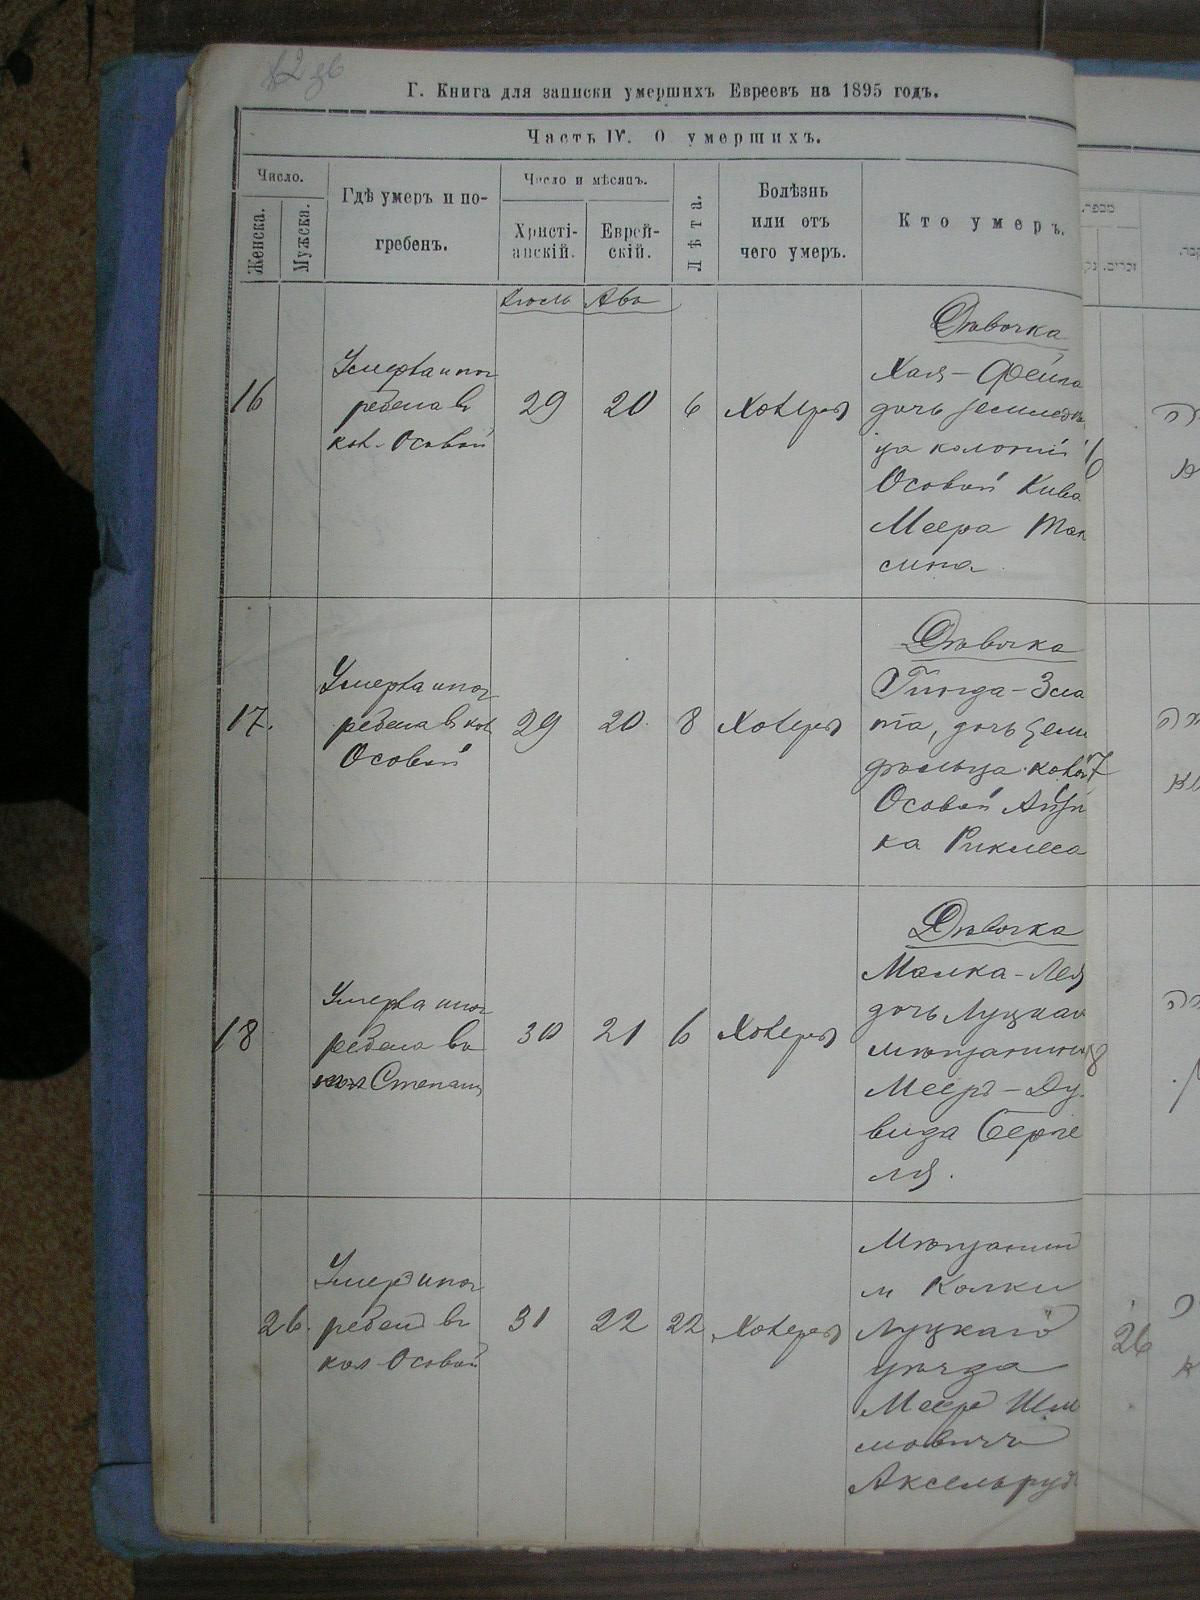 Г. Книга для записки умершихъ Евреевъ на 1895 годъ.
Часть IV. О умершихъ.
Число.
Женска.
Мужска.
Гдѣ умеръ и по-
гребенъ.
Число и мѣсяцъ.
Христі-
анскій.
Еврей-
скій.
Лѣта.
Болѣзнь
или отъ
чего умеръ.
Кто умеръ.
Іюль Авъ
16
Умерла и пог
ребена въ
кол. Осовой
29
20
6
Холеры
Дѣвочка
Хая - Фейга
дочь земледѣль
ца колоніи
Осовой Кива
Меера Ток
сина
17.
Умерла и пог
ребена в кол
Осовой
29
20
8
Холеры
Дѣвочка
Гинда - Зла
та, дочь земле
дѣльца колон
Осовой Айзи
ка Риклеса
18
Умерла и пог
ребена въ
Степань
30
21
6
Холеры
Дѣвочка
Малка - Лея
дочь Луцкаго
мѣщанина
Меера - Ду
вида Берге
ля.
26.
Умеръ и пог
ребенъ въ
кол Осовой
31
22
22
Холеры
Мѣщанинъ
м Колки
Луцкаго
уѣзда
Мееръ Шли
мовичъ
Аксельрудъ
מספר.
זכרים.
26